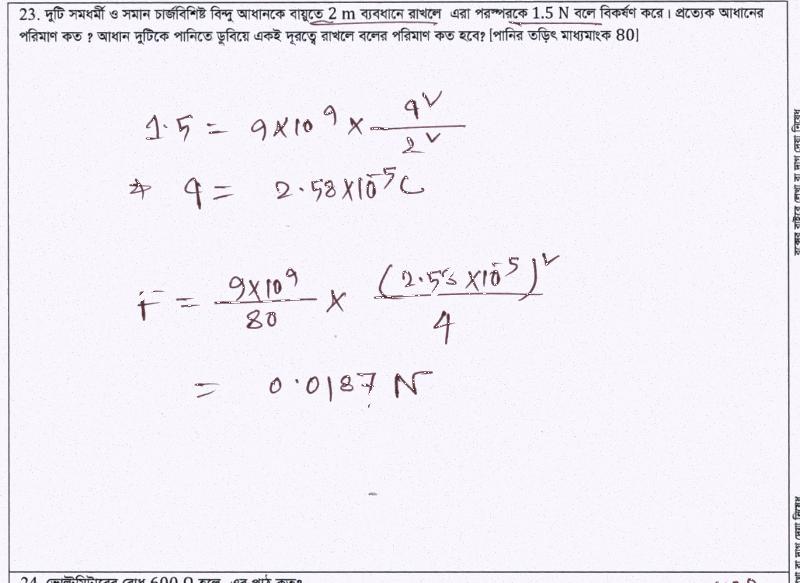 23. দুটি সমধর্মী ও সমান চার্জবিশিষ্ট বিন্দু আধানকে বায়ুতে 2 m ব্যবধানে রাখলে এরা পরস্পরকে 1.5 N বলে বিকর্ষণ করে। প্রত্যেক আধানের
পরিমাণ কত ? আধান দুটিকে পানিতে ডুবিয়ে একই দূরত্বে রাখলে বলের পরিমাণ কত হবে? [পানির তড়িৎ মাধ্যমাংক 80]
1.5 = 9×10⁹ × q²/2²
⇒ q = 2.58×10⁻⁵C
F = 9×10⁹/80 × (2.58×10⁻⁵)²/4
= 0.0187 N
24. ভোল্টমিটারের রোধ 600 Ω হলে, এর পাঠ কত?